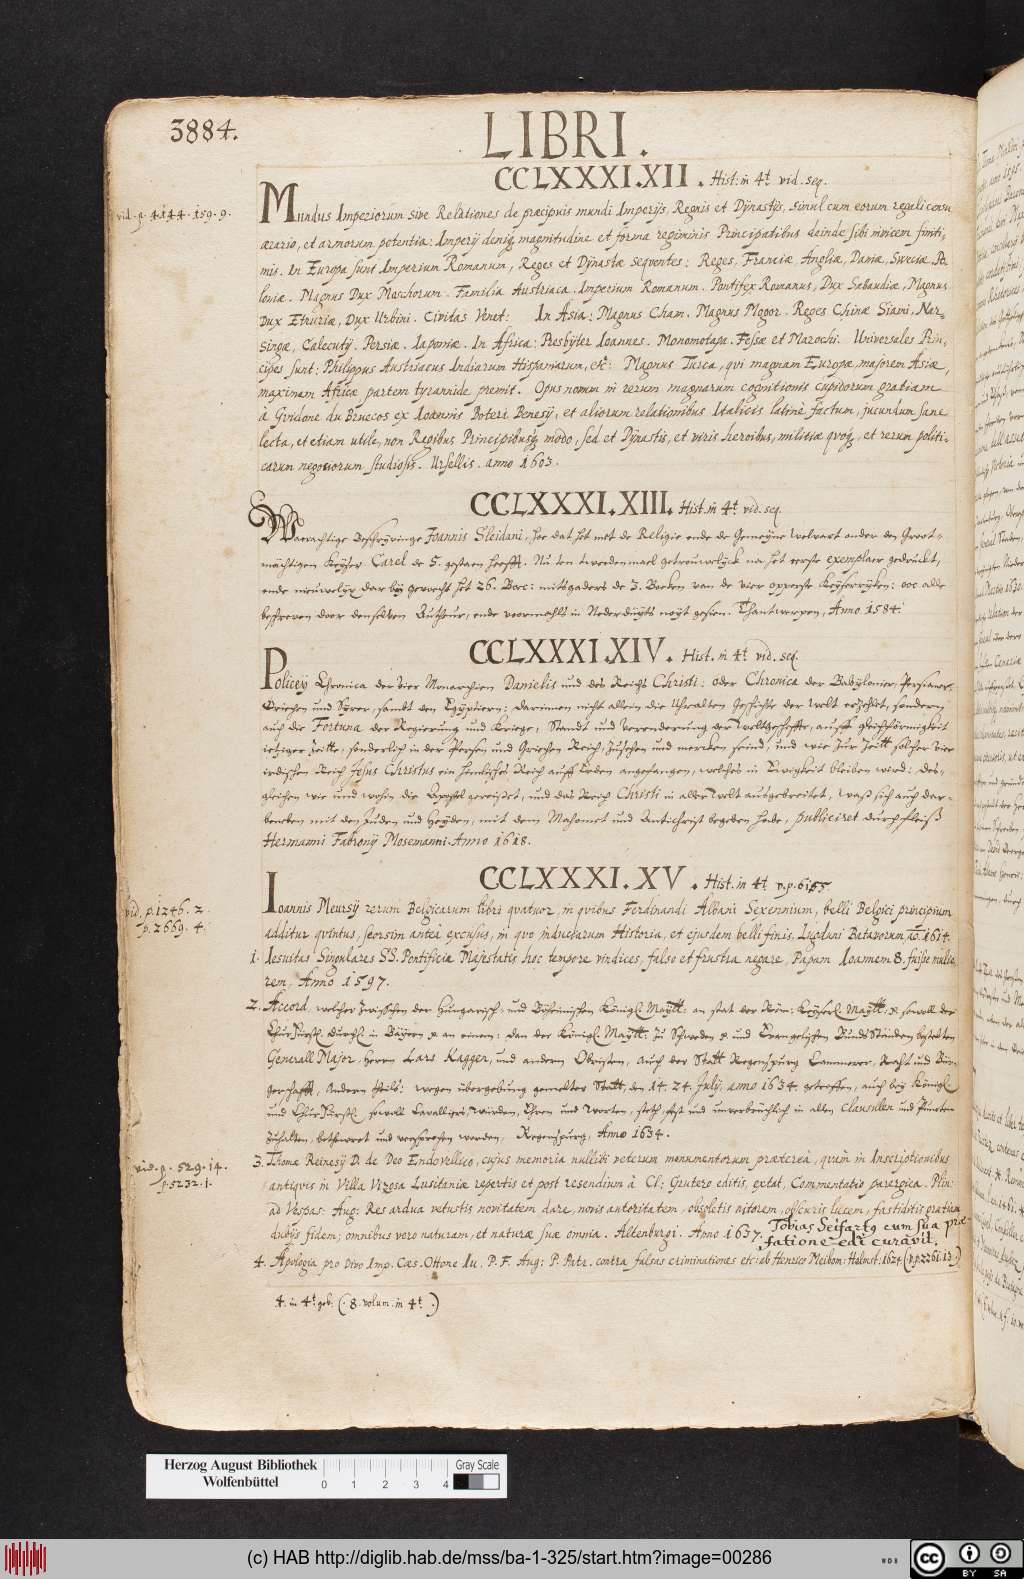 3884.
LIBRI.
CCLXXXI.XII. Hist: in 4t. vid. seq.
vid. p. 4144. 159. 9.
Mundus Imperiorum sive Relationes de præcipuis mundi Imperijs, Regnis et Dynastijs, simul cum eorum regali censu
ærario, et armorum potentia: Imperij deniq. magnitudine et forma regiminis Principatibus deinde sibi invicem finiti-
mis. In Europa sunt Imperium Romanum, Reges et Dynastæ sequentes: Reges, Franciæ Angliæ, Daniæ, Sueciæ, Po-
loniæ. Magnus Dux Moschorum. Familia Austriaca. Imperium Romanum. Pontifex Romanus, Dux Sabaudiæ, Magnus
Dux Etruriæ, Dux Urbini. Civitas Venet: In Asia: Magnus Cham. Magnus Mogor. Reges Chinæ Siami, Nar-
singæ, Calecutij. Persiæ. Iaponiæ. In Africa: Presbyter Ioannes. Monomotapa. Fessæ et Marochi. Universales Prin-
cipes sunt: Philippus Austriacus Indiarum Hispaniarum, etc: Magnus Turca, qui magnam Europæ, majorem Asiæ,
maximam Africæ partem tyrannide premit. Opus novum in rerum magnarum cognitionis cupidorum gratiam
à Gvidone du Bruecos ex Ioannis Boteri Benesij, et aliorum relationibus Italicis latinè factum, jucundum sane
lectu, et etiam utile, non Regibus Principibusq. modo, sed et Dynastis, et viris heroibus, militiæ quoq., et rerum politi-
carum negotiorum studiosis. Ursellis. anno 1603.
CCLXXXI.XIII. Hist. in 4t. vid. seq.
Waerachtige Beschryvinge Joannis Sleidani, hoe dat het met de Religie ende de Gemeyne Welvart onder den Groot-
mächtigen Keyser Carel de 5. gestaen heefft. Nu ten tweedenmael getrouwelyck na het eerste exemplaer gedruckt,
ende nieuwelyx daer by gevoecht het 26. Boec: mitsgaders de 3. Boecken van de vier opperste Keyserrycken: ooc alle
beschreven door denselven Autheur, ende voormahls in Nederduyts noyt gesien. Thantwerpen, Anno 1584
CCLXXXI.XIV. Hist. in 4t. vid. seq.
Policey Chronica der vier Monarchien Danielis und des Reichs Christi: oder Chronica der Babylonier, Persianer,
Griechen und Syrer, sambt den Egyptiern: Darinnen nicht allein die Uhralten Geschichte der Welt erzehlet, sondern
auch die Fortuna der Regierung und Kriege, Standt und Verenderung der Weltgeschefte, auff gleichförmigkeit
ietziger Zeitte, sonderlich in der Persen und Griechen Reich, zusehen und mercken seind, und wie zur Zeitt solcher vier
irdischen Reich Jesus Christus ein himlisches Reich auff Erden angefangen, welches in Ewigkeit bleiben wird: Des-
gleichen wie und wohin die Apostel gereiset, und das Reich Christi in aller Welt ausgebreitet, Waß sich auch dar-
beneben mit den Juden und Heyden, mit dem Mahomet und Antichrist begeben habe, publiciret durch fleiß
Hermanni Fabronij Mosemanni. Anno 1618.
CCLXXXI.XV. Hist. in 4t. p.p. 6155.
vid. p. 1246. 2.
p. 2669. 4.
Ioannis Meursij rerum Belgicarum libri quatuor, in quibus Ferdinandi Albani Sexennium, belli Belgici principium
additur quintus, seorsim antea excusus, in quo induciarum Historia, et ejusdem belli finis. Lugduni Batavorum, ao. 1614.
1. Iesuitas Singulares SS. Pontificiæ Majestatis hoc tempore vindices, falso et frustra negare, Papam Ioannem 8. fuisse mulie-
rem, Anno 1597.
2. Accord, welcher zwischen der Hungarisch: und Böheimischen Königl: Maytt: an stat der Röm: Keyserl. Maytt: etc. sowoll der
ChurFürstl. Durchl. in Bayern etc. an einem: dan der Königl. Maytt: zu Schweden etc. und Evangelischen Bunds Ständen bestelten
Generall Major, Herrn Lars Kagger, und andern Obristen, auch der Statt Regenspurg Cammerer, Raht und Bür-
gerschafft, andern theils: wegen übergebung gemelter Statt, den 14. 24. July, anno 1634 getroffen, auch bey Königl.
und ChurFürstl. sowoll Cavalliers, würden, Ehren und worten, steth, fest und unverbrüchlich in allen Clausulen und Puncten
zuhalten, betheuret und versprochen worden. Regenspurg, Anno 1634.
vid. p. 529. 14.
p. 5232. 1.
3. Thomæ Reinesij D. de Deo Endovellico, cujus memoria nulliti veterum monumentorum præterea, quam in Inscriptionibus
antiquis in Villa Vizosa Lusitaniæ repertis et post resendium à Cl: Grutero editis, extat, Commentatio parergica. Plin:
ad Vespas: Aug: Res ardua vetustis novitatem dare, novis autoritatem, obsoletis nitorem, obscuris lucem, fastiditis gratiam
dubijs fidem; omnibus vero naturam, et naturæ suæ omnia. Altenburgi. Anno 1637. Tobias Seifartq cum sua præ-
fatione edi curavit.
4. Apologia pro Divo Imp. Cæs. Ottone IV. P. F. Aug: P. Patr. contra falsas criminationes etc: ab Henrico Meibom: Helmst: 1624 (p.p. 2261. 13.)
4. in 4t. geb. (. 8. volum. in 4t.)
Herzog August Bibliothek
Wolfenbüttel
0 1 2 3 4
Gray Scale
(c) HAB http://diglib.hab.de/mss/ba-1-325/start.htm?image=00286
WDB
cc BY SA